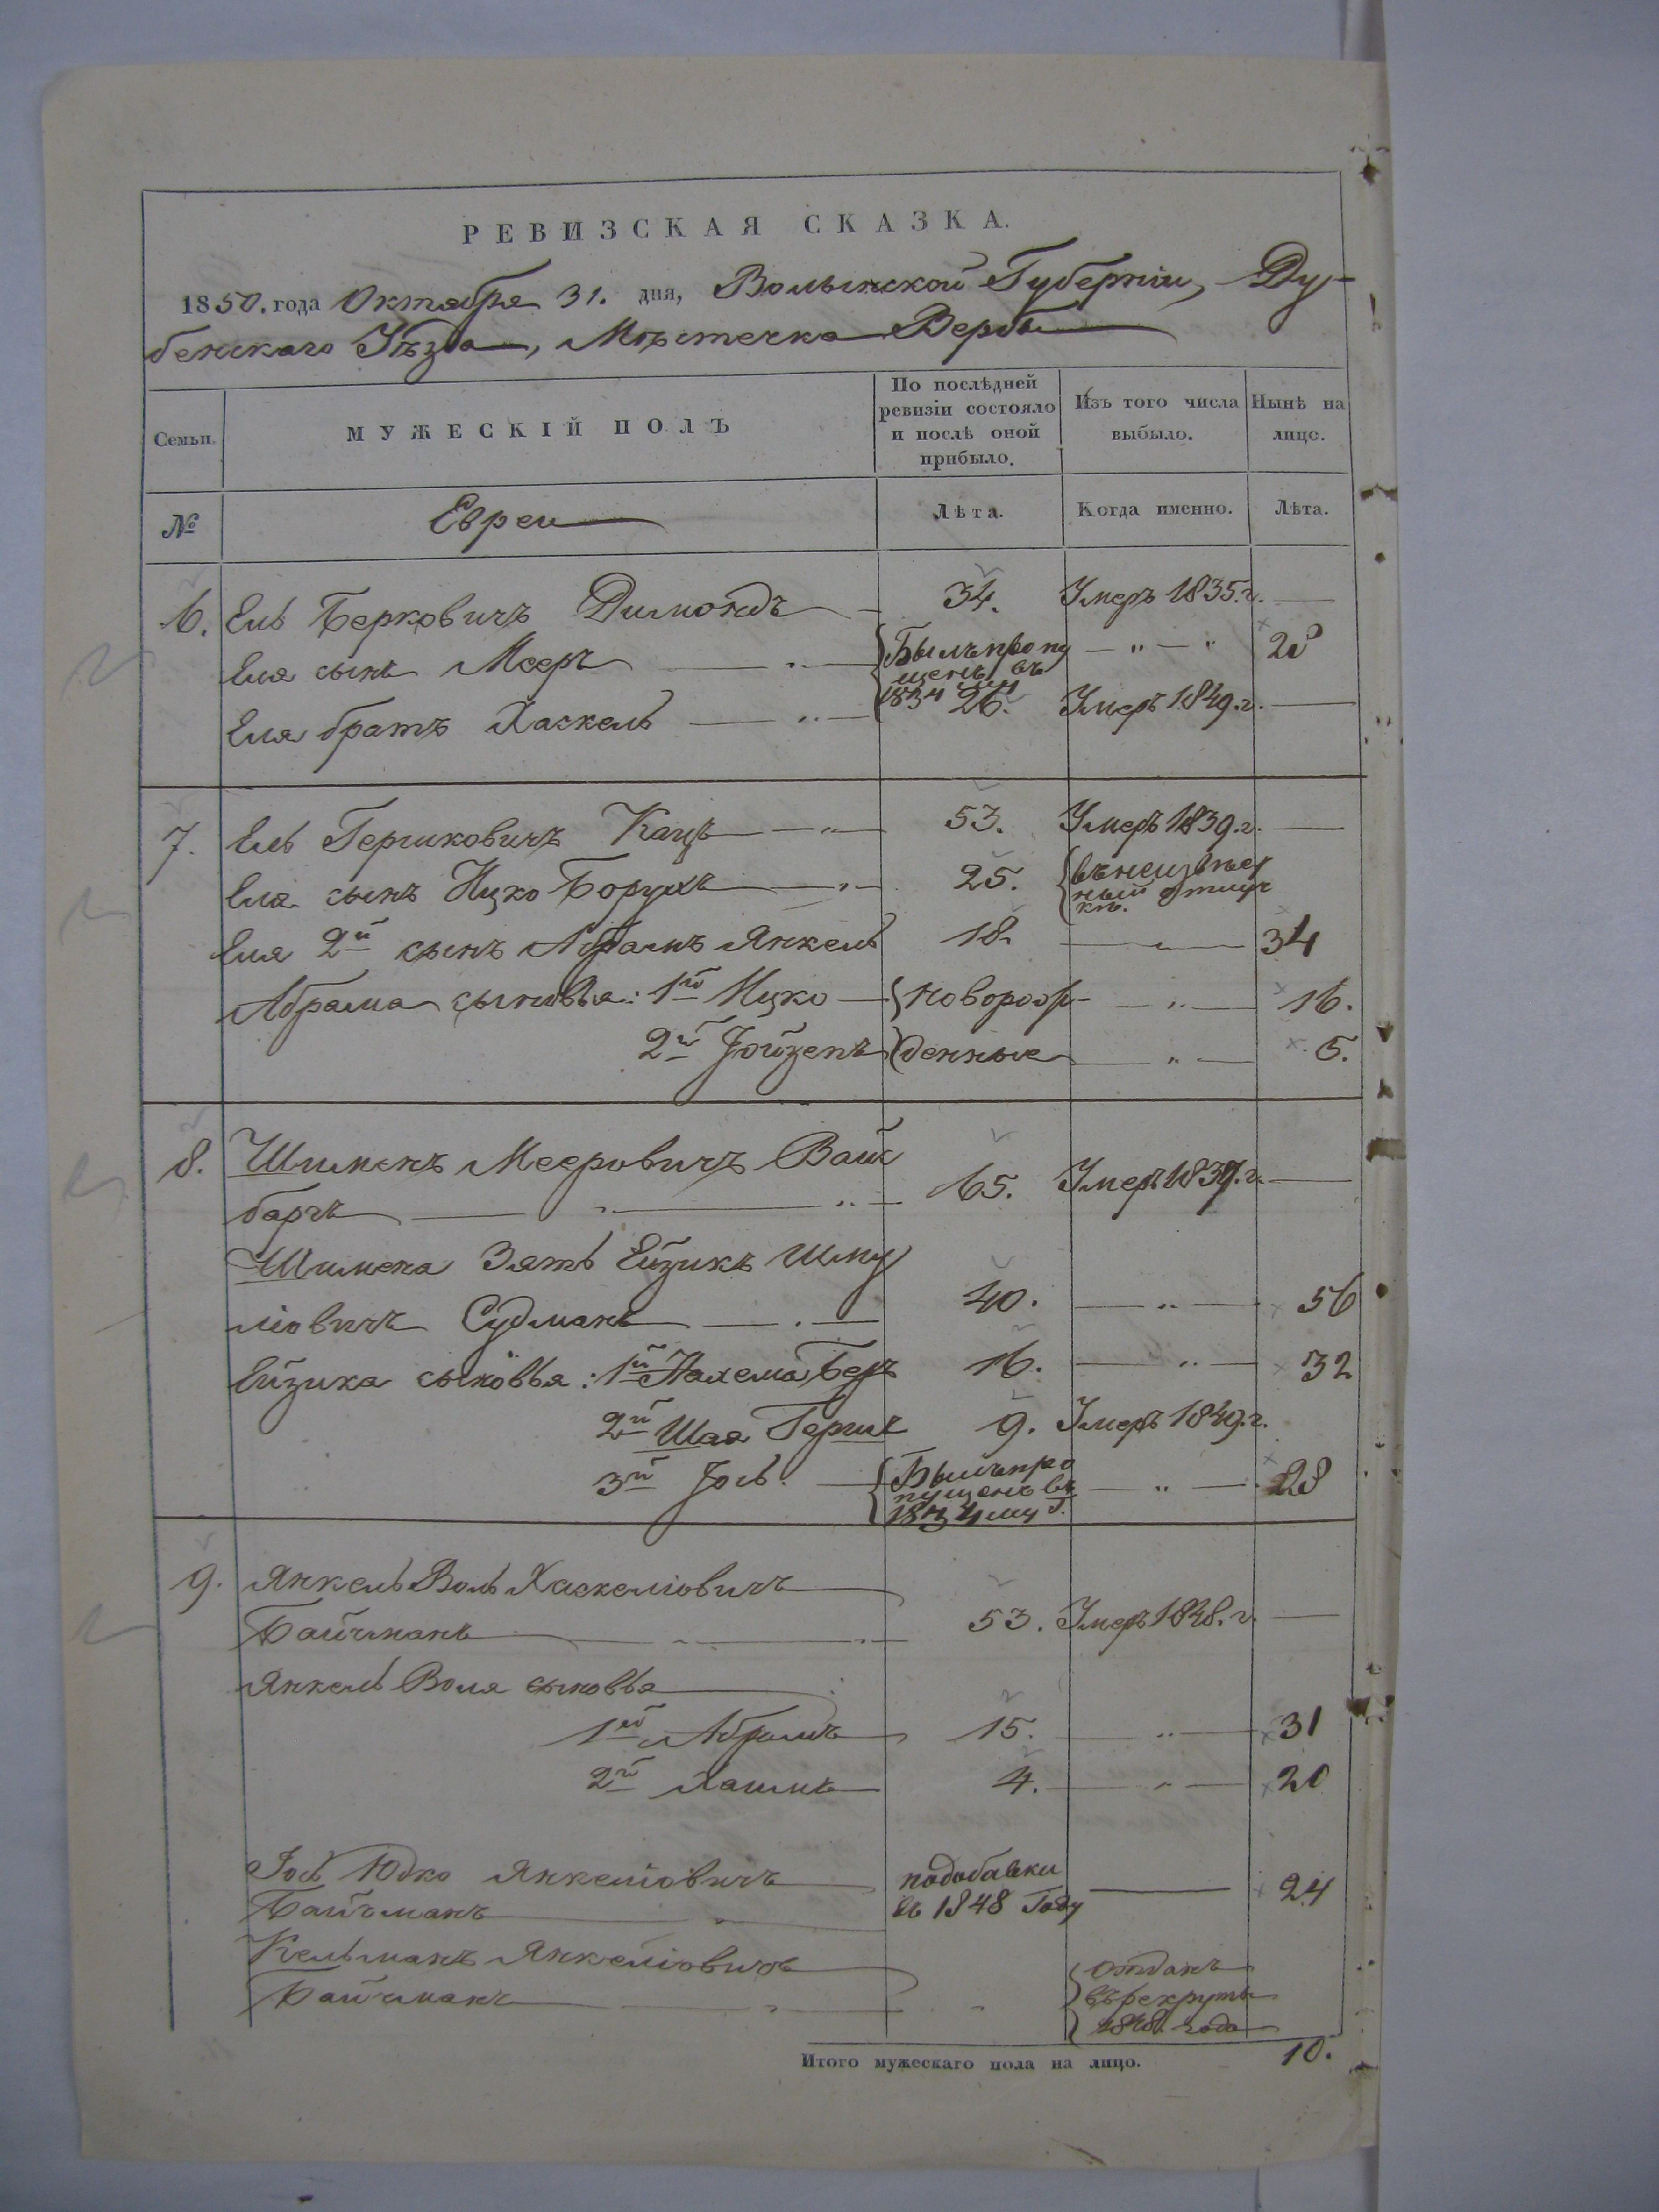 РЕВИЗСКАЯ СКАЗКА.
1850. года Октября 31. дня, Волынской Губерніи, Ду-
бенскаго Уѣзда, Мѣстечка Вербы
Семьи.
МУЖЕСКІЙ ПОЛЪ
По послѣдней ревизіи состояло и послѣ оной прибыло.
Изъ того числа выбыло.
Нынѣ на лицо.
№
Евреи
Лѣта.
Когда именно.
Лѣта.
6. Ель Берковичъ Димондъ 34. Умеръ 1835.г. —
Еля сынъ Мееръ — " — Былъ пропущенъ въ 1834 — " — " 28
Еля братъ Хаскель — " — 26. Умеръ 1849.г. —
7. Ель Гершковичъ Кацъ — " — 53. Умеръ 1839.г. —
Еля сынъ Ицко Борухъ — " — 25. въ неизвѣстный отлучкѣ.
Еля 2й сынъ Абрамъ Янкель 18. — " — 34
Абрама сыновья: 1й Ицко — Новорож- — " — 16.
2й Іойзепъ денные — " — 5.
8. Шименъ Мееровичъ Вайс
баръ — " — " — 65. Умеръ 1839.г. —
Шимена Зять Ейзикъ Шму
ліовичъ Судманъ — " — 40. — " — 56
Ейзика сыновья: 1й Нахема Беръ 16. — " — 32
2й Шая Гершъ 9. Умеръ 1849.г.
3й Іось. — Былъ пропущенъ въ 1834му г. — " — 28
9. Янкель Воль Хаскеліовичъ
Байчманъ — " — " — 53. Умеръ 1848.г. —
Янкель Воля сыновья
1й Абрамъ 15. — " — 31
2й Хаимъ 4. — " — 20
Іось Юдко Янкеліовичъ
Байчманъ — " подобавки въ 1848 Году — 24
Кельманъ Янкеліовичъ
Байчманъ — " — " отданъ въ рекруты 1848. года
Итого мужескаго пола на лицо. 10.